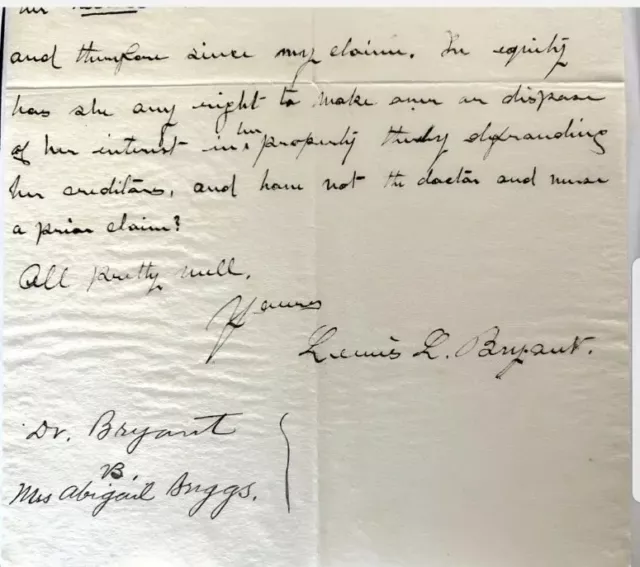 her
and therefore since my claim. In equity
has she any right to make over or dispose
of her interest in her property thereby defrauding
her creditors, and have not the doctor and nurse
a prior claim?
All pretty well.
Yours
Lewis L. Bryant.
Dr. Bryant
vs.
Mrs Abigail Briggs.